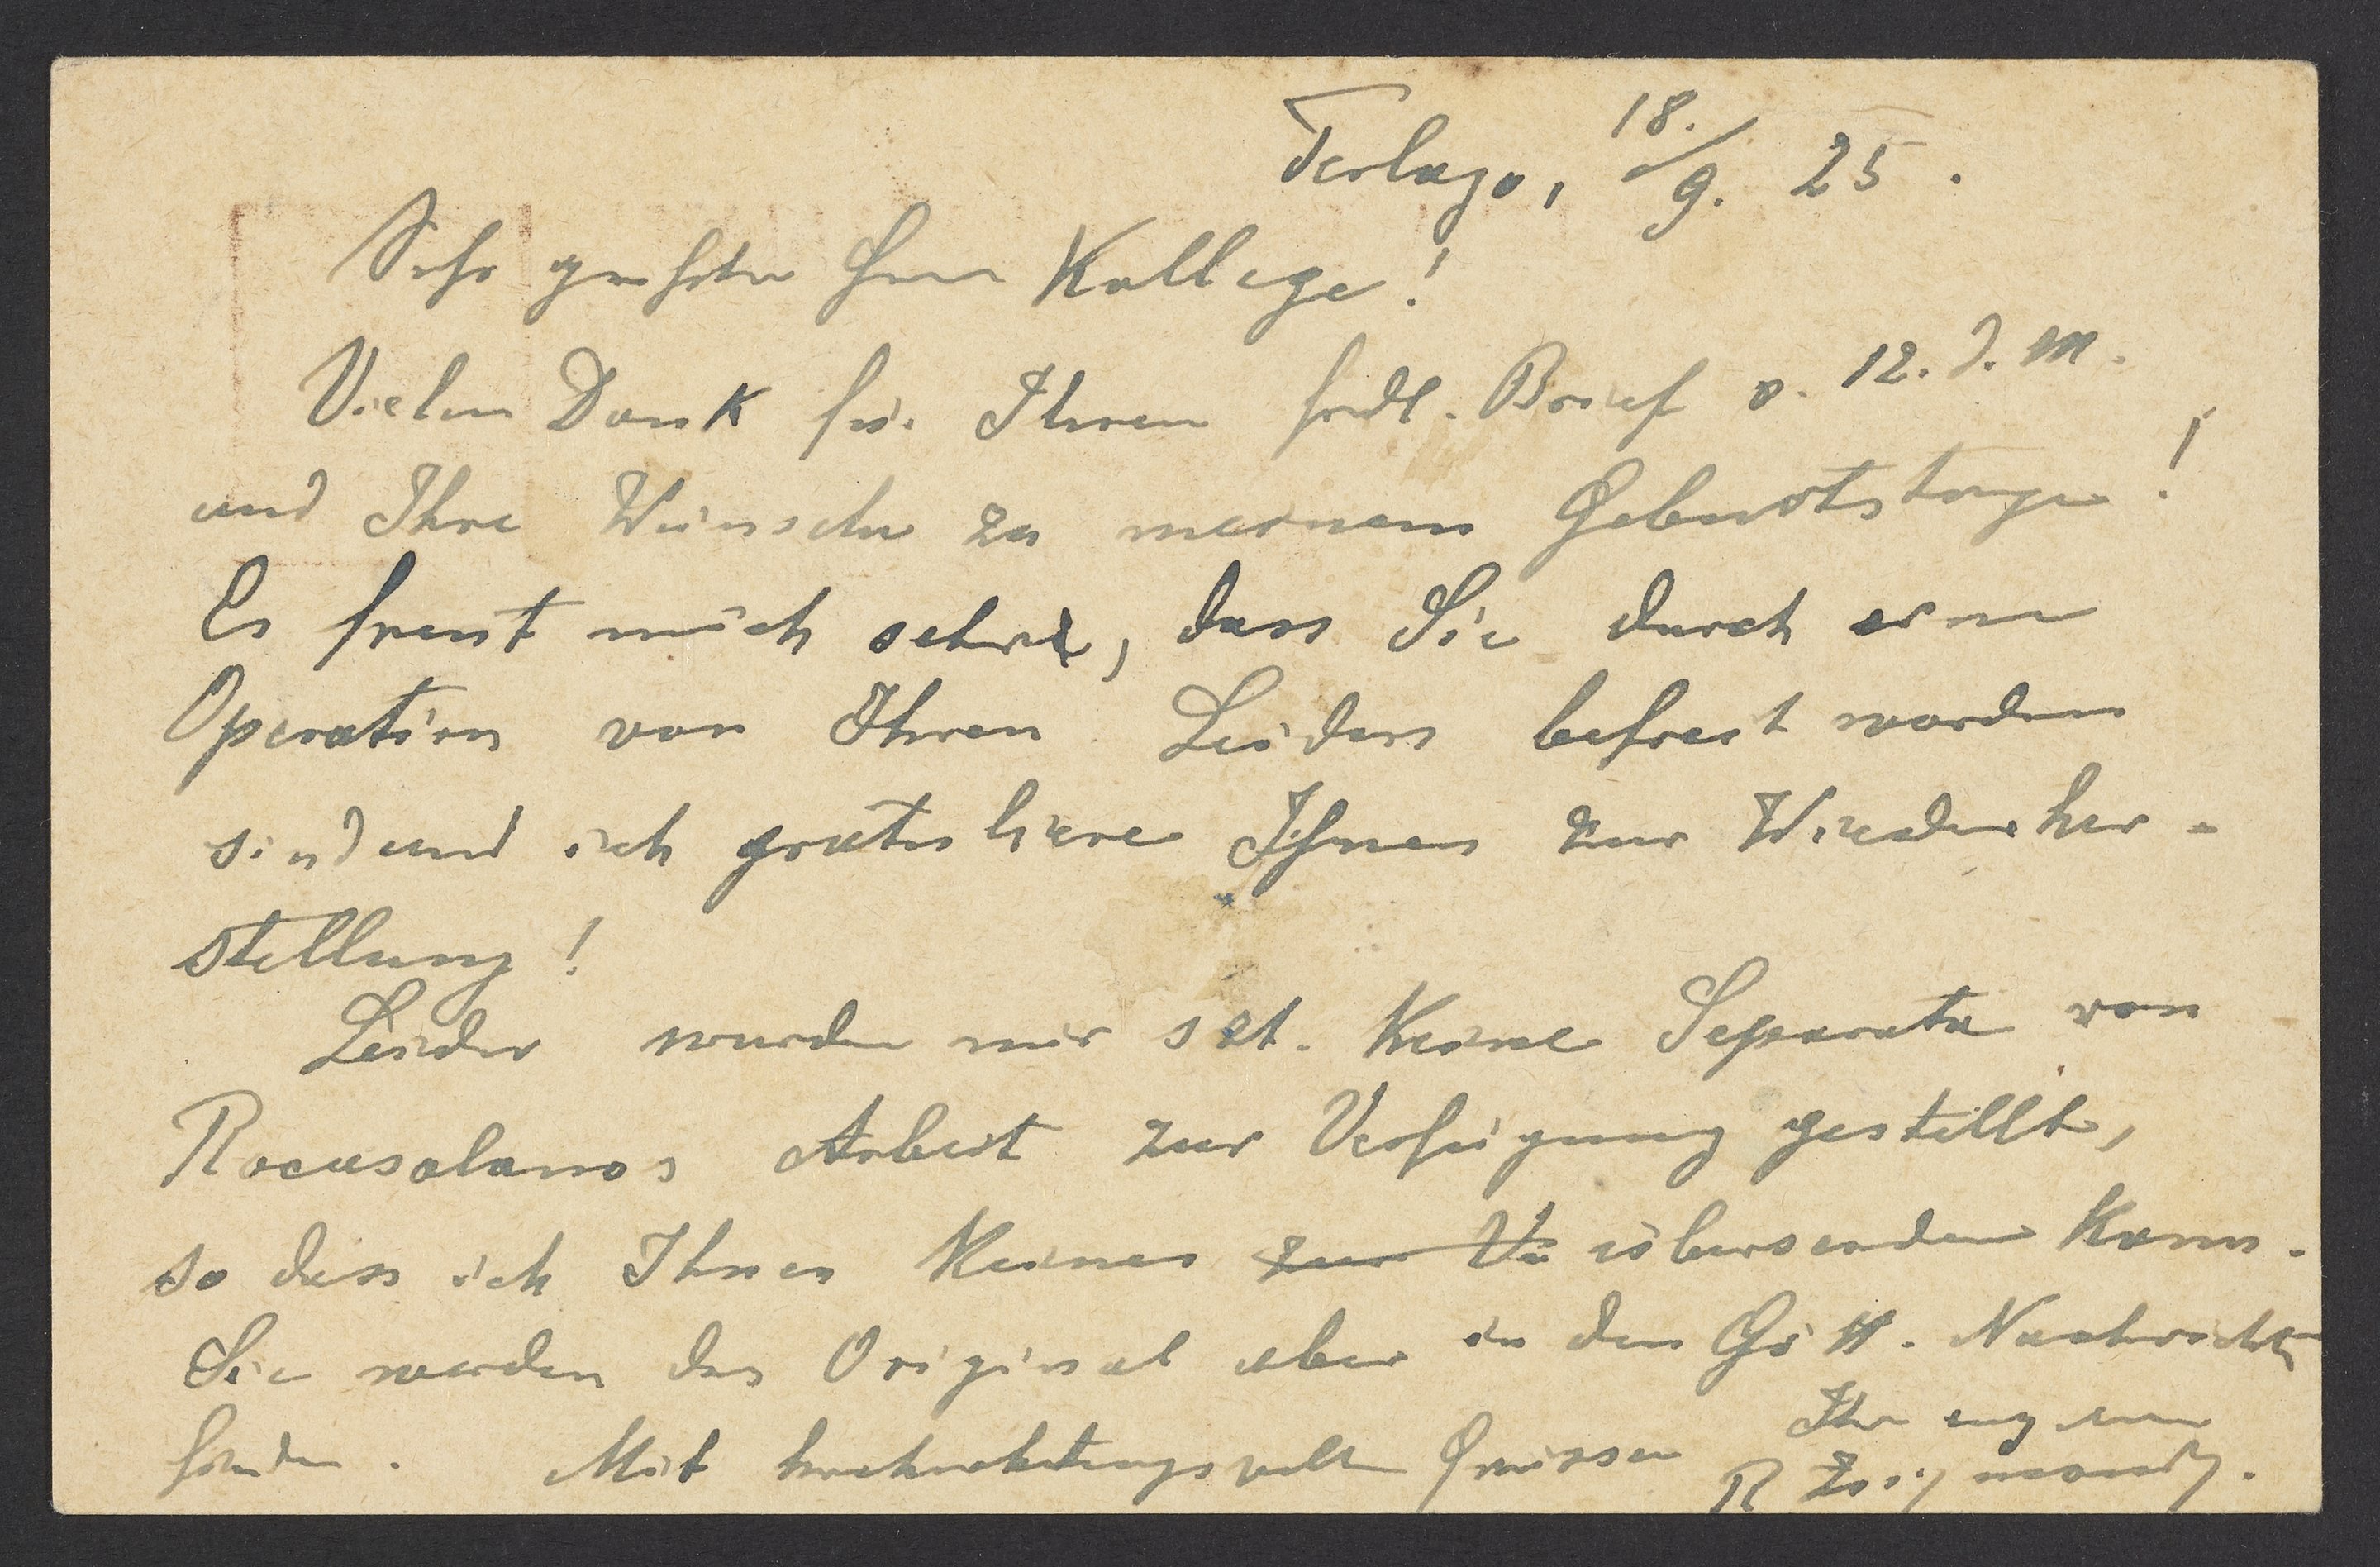 Terlago, 18./9. 25.
Sehr geehrter Herr Kollege!
Vielen Dank für Ihren frdl. Brief v. 12. d. M.
und Ihre Wünsche zu meinem Geburtstage!
Es freut mich sehr, dass Sie durch eine
Operation von Ihren Leiden befreit worden
sind und ich gratuliere Ihnen zur Wiederher-
stellung!
Leider wurden mir szt. keine Separata von
Rocasolanos Arbeit zur Verfügung gestellt,
so dass ich Ihnen keines zur Ve übersenden kann.
Sie werden das Original aber in den Gött. Nachrichten
finden. Mit hochachtungsvollen Grüssen
Ihr ergebener
R Zsigmondy.